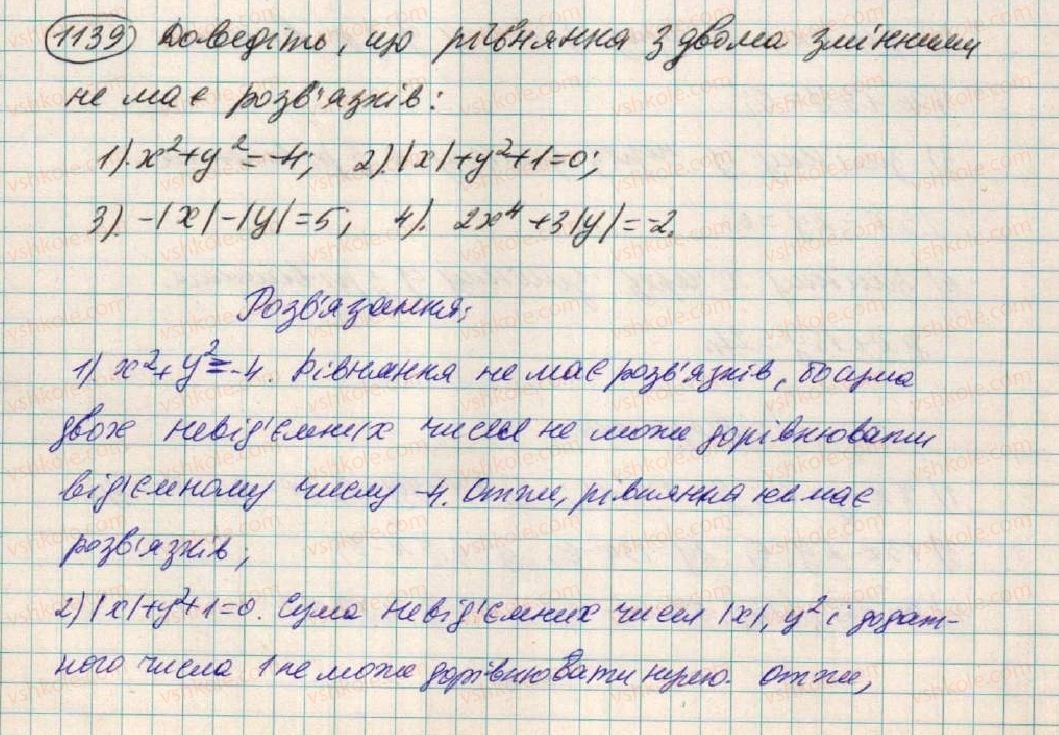 1139 Доведіть, що рівняння з двома змінними
не має розв'язків:
1). x²+y²=-4; 2). |x|+y²+1=0;
3). -|x|-|y|=5; 4). 2x⁴+3|y|=-2.
Розв'язання:
1). x²+y²=-4. Рівняння не має розв'язків, бо сума
двох невід'ємних чисел не може дорівнювати
від'ємному числу -4. Отже, рівняння не має
розв'язків;
2) |x|+y²+1=0. Сума невід'ємних чисел |x|, y² і додат-
ного числа 1 не може дорівнювати нулю. Отже,